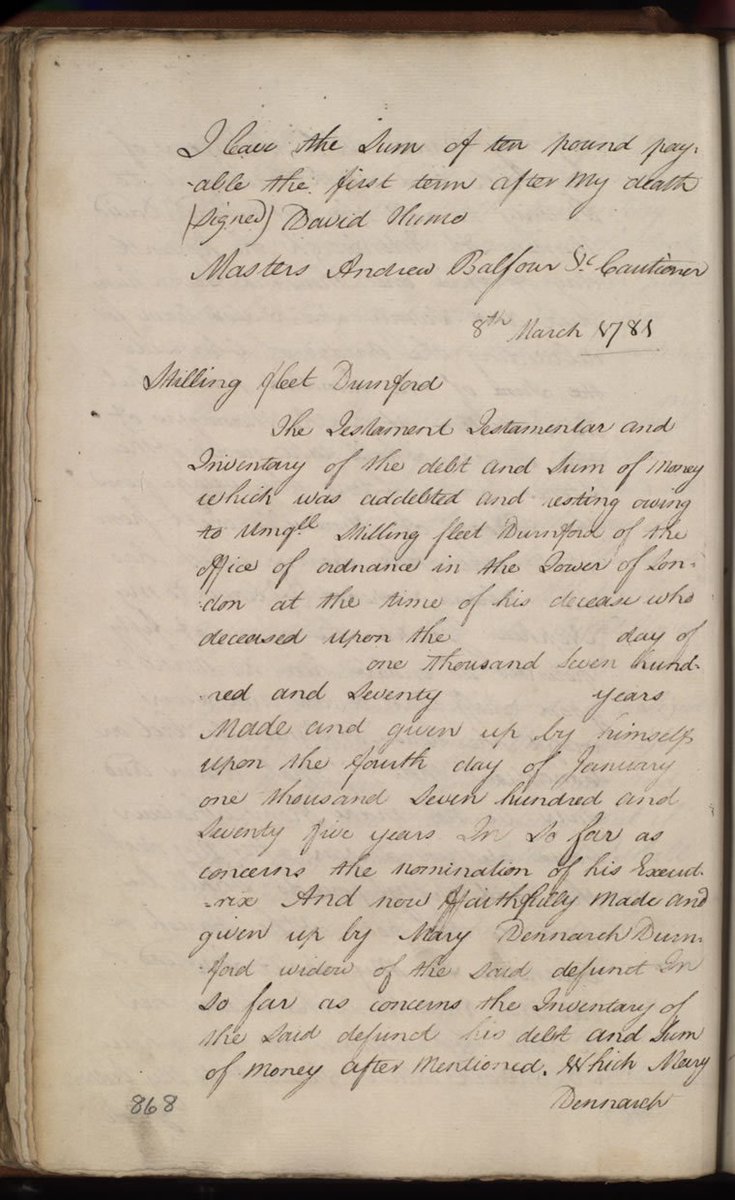 I leave the Sum of ten pound pay-
-able the first term after My death
(signed) David Hume
Masters Andrew Balfour &c Cautioner
8th March 1781
Stilling fleet Durnford
The Testament Testamentar and
Inventary of the debt and Sum of money
which was addebted and resting owing
to Umqll Stilling fleet Durnford of the
office of ordnance in the Tower of Lon-
-don at the time of his decease who
deceased upon the day of
one thousand Seven hund-
-red and Seventy years
Made and given up by himself
upon the fourth day of January
one thousand Seven hundred and
Seventy five years In So far as
concerns the nomination of his Execut-
-rix And now ffaithfully Made and
given up by Mary Dennarch Durn-
-ford widow of the Said defunct In
So far as concerns the Inventary of
the Said defunct his debt and Sum
of money after Mentioned. Which Mary
Dennarch
868